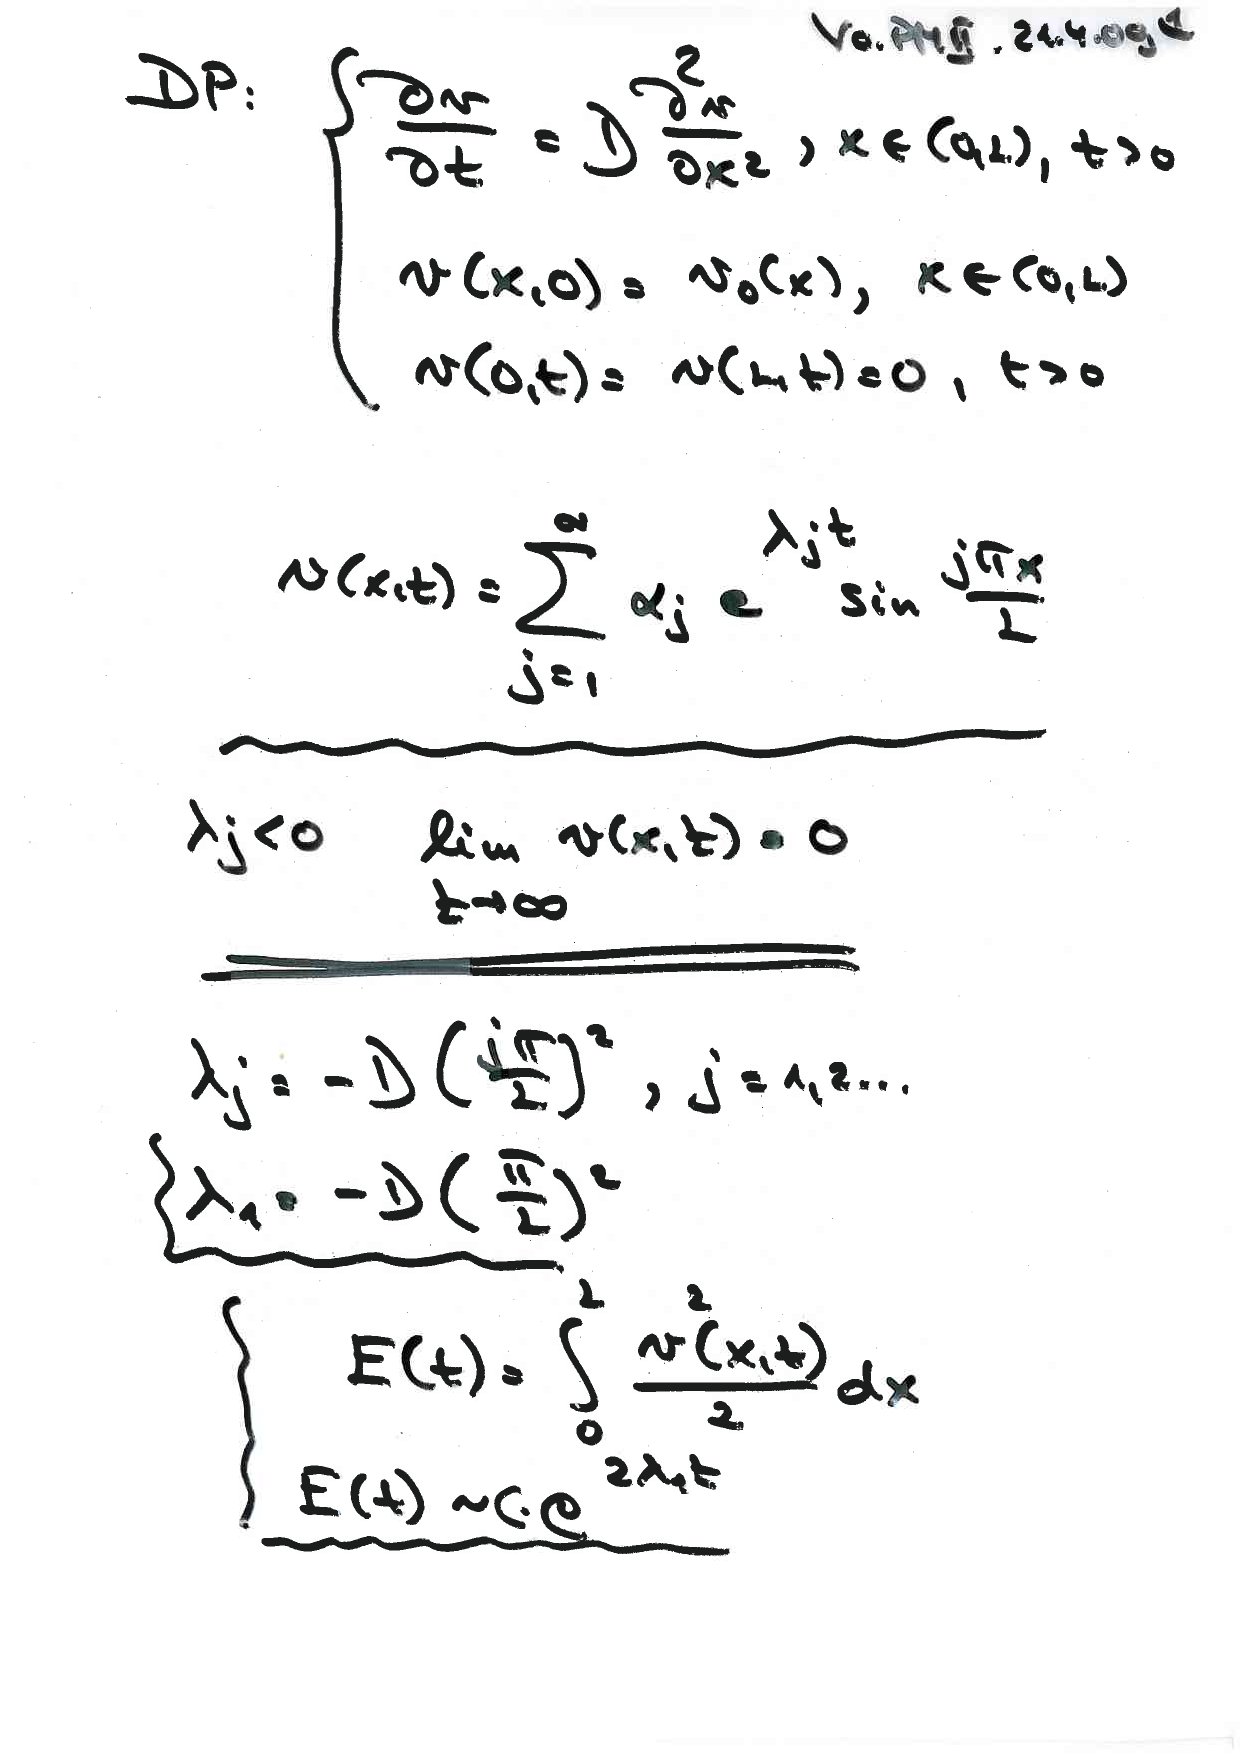 Vo. PM II. 21.4.09
DP: { ∂v/∂t = D ∂²v/∂x², x ∈ (0,L), t>0
v(x,0) = v₀(x), x ∈ (0,L)
v(0,t) = v(L,t) = 0, t>0
v(x,t) = ∑_{j=1}^{∞} α_j e^{λ_j t} sin jπx/L
λ_j < 0 lim_{t→∞} v(x,t) = 0
λ_j = -D (jπ/L)², j = 1,2...
λ₁ = -D (π/L)²
E(t) = ∫₀^L v²(x,t)/2 dx
E(t) ~ C·e^{2λ₁t}